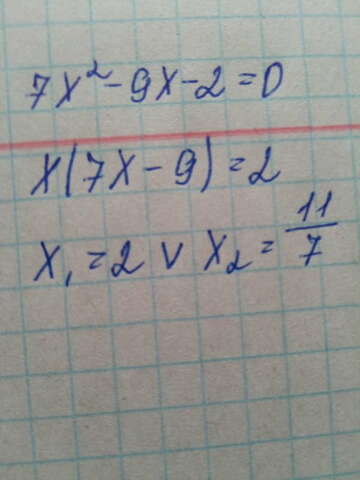 7x² - 9x - 2 = 0
x(7x - 9) = 2
x₁ = 2 ∨ x₂ = 11/7